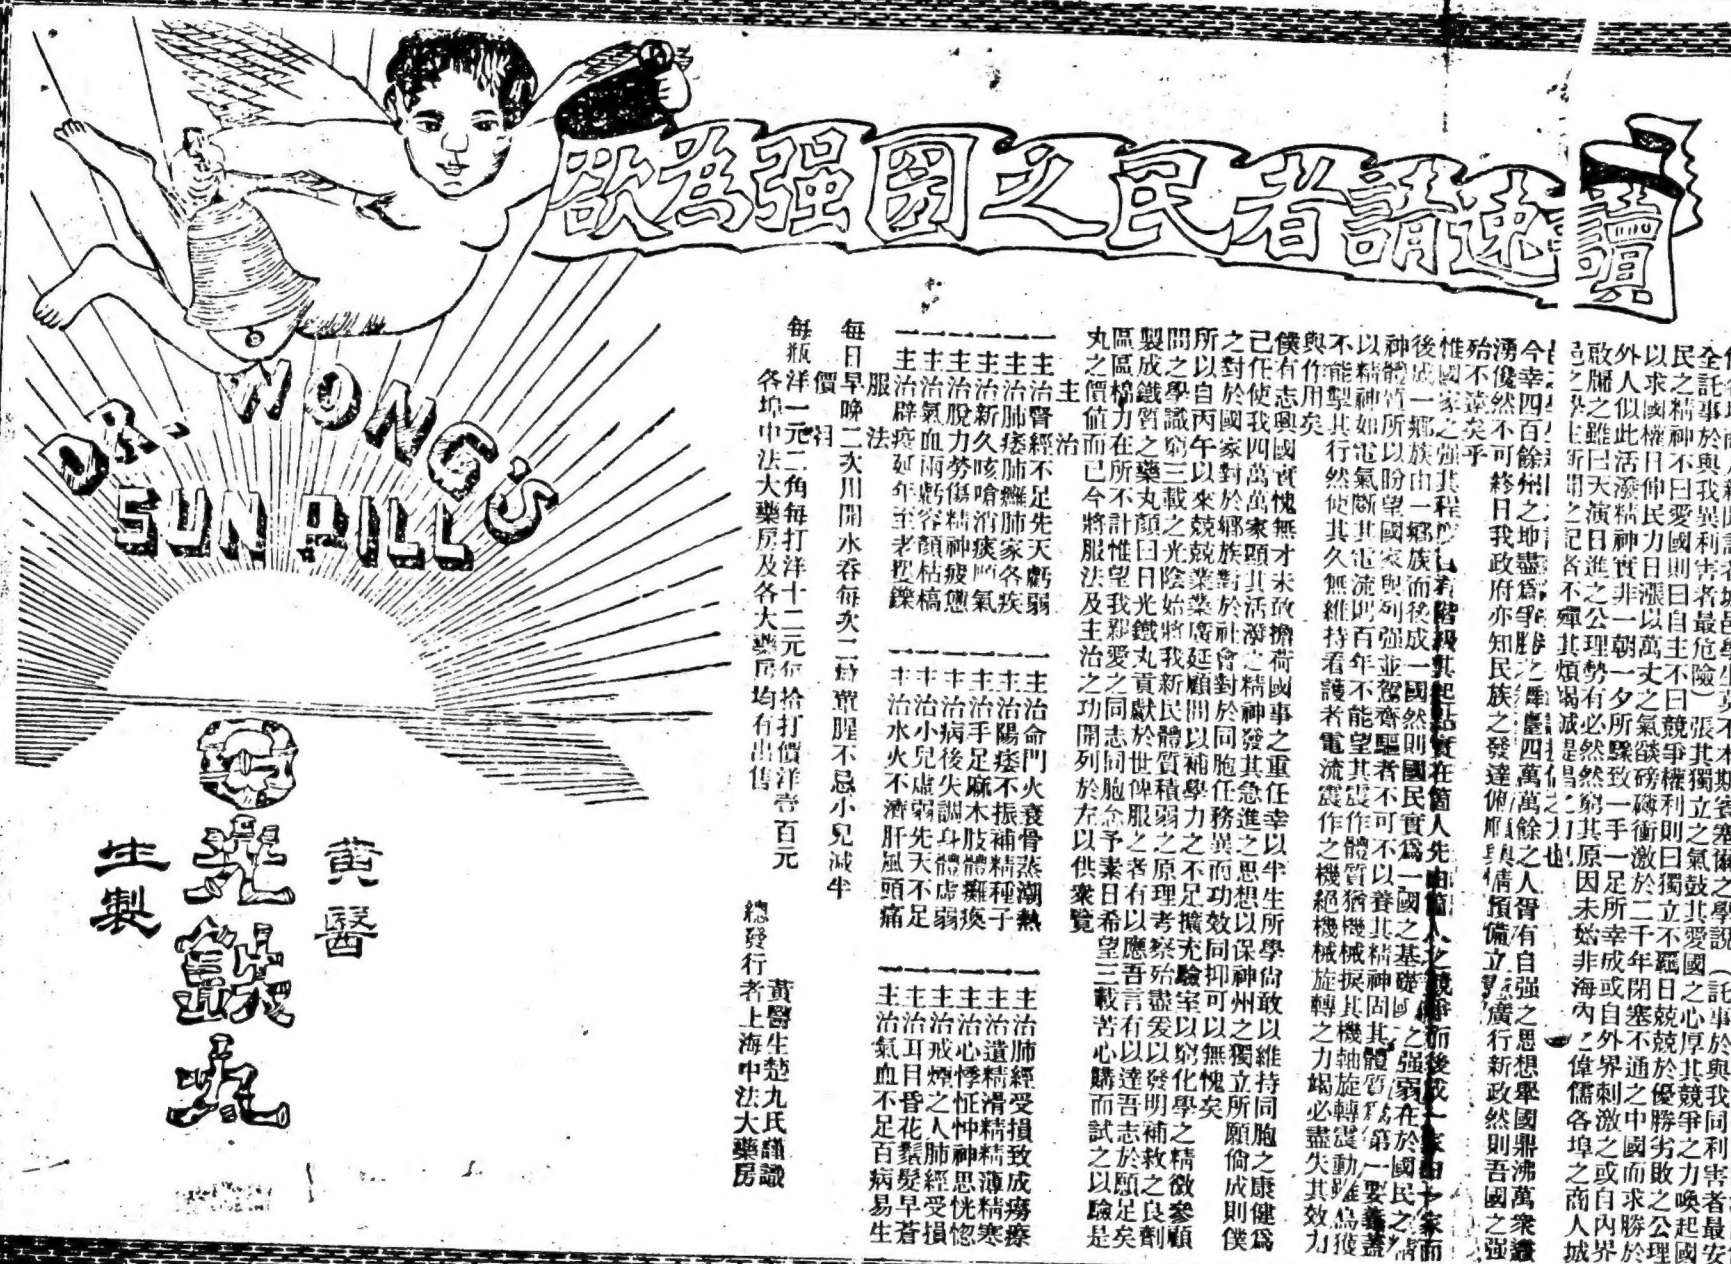 欲為强國之民者請速讀
學生莫不本斯賓塞爾之學說（託事於與我同利害者最安
全託事於與我異利害者最危險）張其獨立之氣鼓其愛國之心厚其競爭之力喚起國
民之精神不曰愛國則曰自主不曰競爭權利則曰獨立不羈日競競於優勝劣敗之公理
以求國權日伸民力日漲以萬丈之氣燄磅礴衝激於二千年閉塞不通之中國而求勝於
外人似此活潑精神實非一朝一夕所驟致一手一足所幸成或自外界刺激之或自內界
啟牖之雖曰天演日進之公理勢有必然然窮其原因未始非海內之偉儒各埠之商人城
邑之學生新聞之記者不殫其煩竭誠提倡之力也
今幸四百餘州之地盡爲爭勝之舞臺四萬萬餘之人胥有自强之思想舉國鼎沸萬衆
湧儼然不可終日我政府亦知民族之發達俯順輿情預備立憲廣行新政然則吾國之强
殆不遠矣乎
惟國家之强其程度自有階級其起點實在箇人先由箇人之競爭而後成一家由一家而
後成一鄉族由一鄉族而後成一國然則國民實爲一國之基礎國之强弱在於國民之精
神體質所以盼望國家與列强並駕齊驅者不可不以養其精神固其體質爲第一要義蓋
以精神如電氣斷其電流則百年不能望其震作體質猶機械捩其機軸旋轉震動雖烏獲
不能掣其行然使其久無維持看護者電流震作之機絕機械旋轉之力竭必盡失其效力
與作用矣
僕有志興國實愧無才未敢擔荷國事之重任幸以半生所學尙敢以維持同胞之康健爲
己任使我四萬萬家顯其活潑之精神發其急進之思想以保神州之獨立所願倘成則僕
之對於國家對於鄉族對於社會對於同胞任務異而功效同抑可以無愧矣
所以自丙午以來兢兢業業廣延顧問以補學力之不足擴充驗室以窮化學之精微參顧
問之學識窮三載之光陰始將我新民體質積弱之原理考察殆盡爰以發明補救之良劑
製成鐵質之藥丸顏曰日光鐵丸貢獻於世俾服之者有以應吾言有以達吾志於願足矣
區區棉力在所不計惟望我邪愛之同志同胞念予素日希望三載苦心購而試之以驗是
丸之價値而已今將服法及主治之功開列於左以供衆覽
主治
一主治腎經不足先天虧弱
一主治肺痿肺癰肺家各疾
一主治新久咳嗆消痰順氣
一主治脫力勞傷精神疲憊
一主治氣血兩虧容顏枯槁
一主治辟疫延年至老矍鑠
一主治命門火衰骨蒸潮熱
一主治陽痿不振補精種子
一主治手足麻木肢體癱瘓
一主治病後失調身體虛弱
一主治小兒虛弱先天不足
一主治水火不濟肝風頭痛
一主治肺經受損致成癆瘵
一主治遺精滑精精薄精寒
一主治心悸怔忡神思恍惚
一主治戒煙之人肺經受損
一主治耳目昏花鬚髮早蒼
一主治氣血不足百病易生
服法
每日早晚二次用開水吞每次二粒葷腥不忌小兒減半
價目
每瓶洋一元二角每打洋十二元每拾打價洋壹百元
各埠中法大藥房及各大藥房均有出售
黃醫生楚九氏謹識
總發行者上海中法大藥房
DR. WONG'S
SUN PILL
黃醫
日光鐵丸
生製